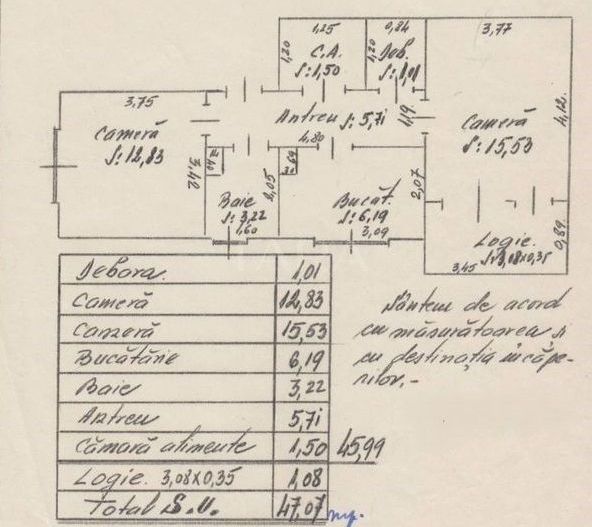 1,25
0,84
3,77
1,20
C.A.
S:1,50
1,20
Deb.
S:1,01
3,75
Cameră
S:12,83
Antreu S:5,71
4,80
1,19
Cameră
S:15,53
4,12
3,42
2,05
Baie
S:3,22
1,60
Bucăt.
S:6,19
3,09
2,07
Logie.
S:3,08x0,35
3,45
0,89
Debara 1,01
Cameră 12,83
Cameră 15,53
Bucătărie 6,19
Baie 3,22
Antreu 5,71
Cămară alimente 1,50 45,99
Logie. 3,08x0,35 1,08
Total S.U. 47,07 mp.
Sîntem de acord
cu măsurătoarea și
cu destinația încăpe-
rilor.-